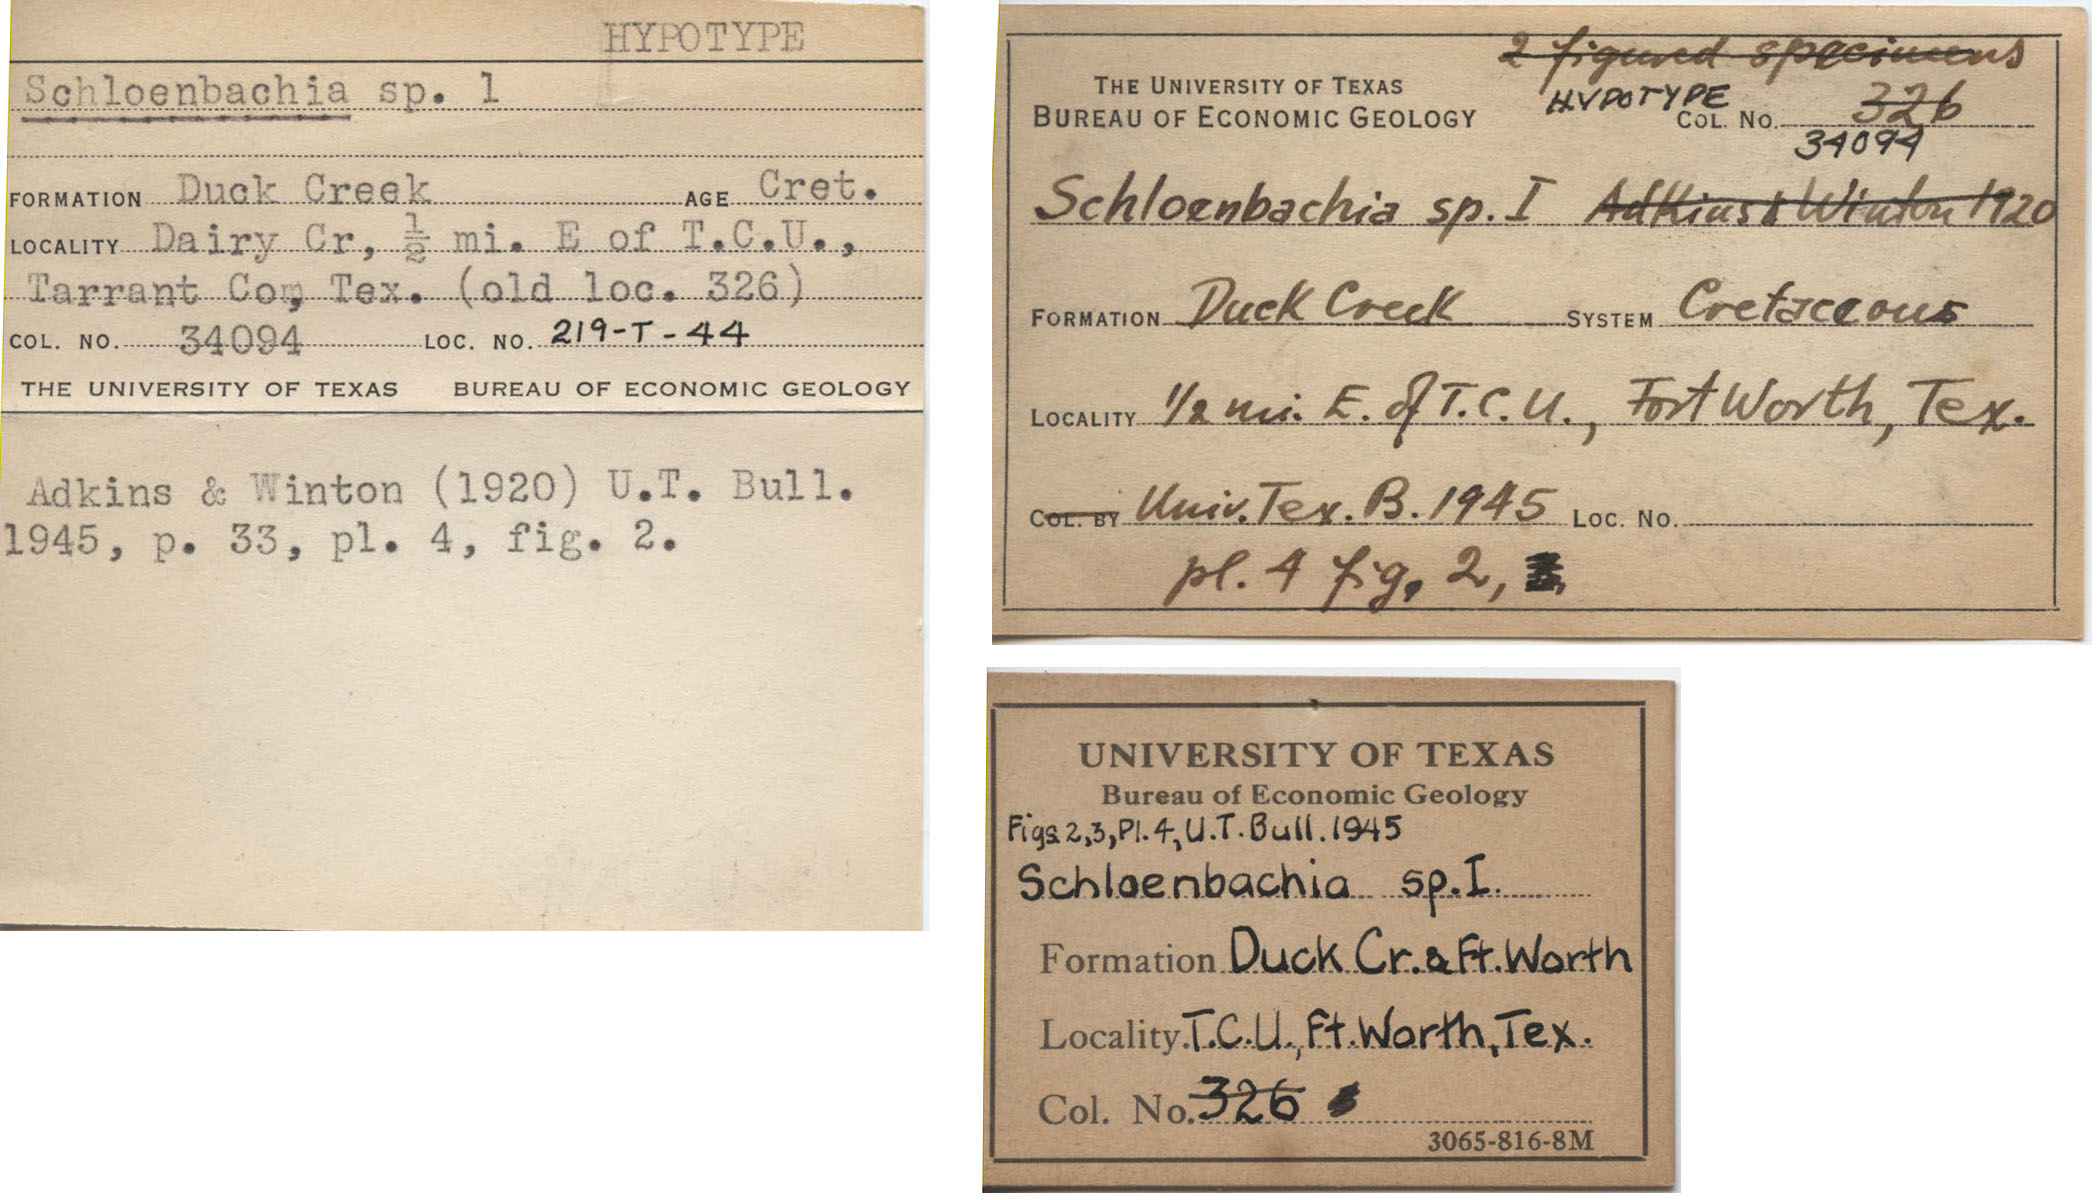 HYPOTYPE
Schloenbachia sp. 1
FORMATION Duck Creek AGE Cret.
LOCALITY Dairy Cr, ½ mi. E of T.C.U.,
Tarrant Co, Tex. (old loc. 326)
COL. NO. 34094 LOC. NO. 219-T-44
THE UNIVERSITY OF TEXAS BUREAU OF ECONOMIC GEOLOGY
Adkins & Winton (1920) U.T. Bull.
1945, p. 33, pl. 4, fig. 2.
2 figured specimens
THE UNIVERSITY OF TEXAS
BUREAU OF ECONOMIC GEOLOGY
HYPOTYPE COL. NO. 326
34094
Schloenbachia sp. I Adkins & Winton 1920
FORMATION Duck Creek SYSTEM Cretaceous
LOCALITY 1/2 mi. E. of T.C.U., Fort Worth, Tex.
COL. BY Univ. Tex. B. 1945 LOC. NO.
pl. 4 fig. 2,
UNIVERSITY OF TEXAS
Bureau of Economic Geology
Figs 2,3, Pl. 4, U.T. Bull. 1945
Schloenbachia sp. I.
Formation Duck Cr. & Ft. Worth
Locality. T.C.U., Ft. Worth, Tex.
Col. No. 326
3065-816-8M